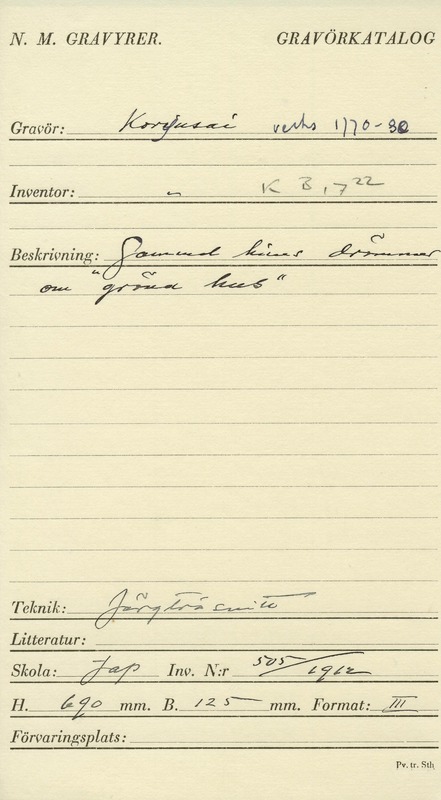 N. M. GRAVYRER. GRAVÖRKATALOG
Gravör: Koriusai verks 1770-80
Inventor: " K B, 7 22
Beskrivning: Gammal kines drömmer
om "gröna hus"
Teknik: Färgträsnitt
Litteratur:
Skola: Jap Inv. N:r 505/1912
H. 690 mm. B. 125 mm. Format: III
Förvaringsplats:
Pv. tr. Sth.